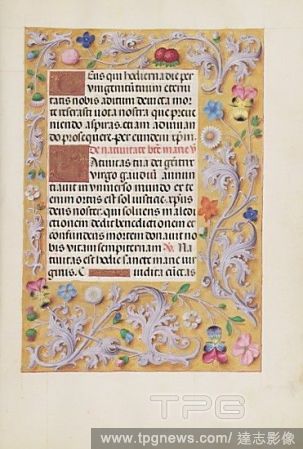 Deus qui hodierna die per
unigenitum tuum eterni
tatis nobis aditum devicta mor
te reserasti vota nostra que preve
niendo aspiras etiam adiuvan
do prosequere per eundem xpm
De nativitate bte marie v
Nativitas tua dei genitrix
virgo gaudium annun
tiavit in universo mundo ex te
enim ortus est sol iustitie xpus
deus noster qui solvens maledi
ctionem dedit benedictionem et
confundens mortem donavit no
bis vitam sempiternam Na
tivitas est hodie sancte marie vir
ginis
TPG
www.tpgnews.com/達志影像